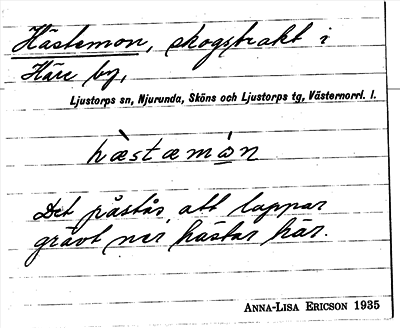 Hästemon, skogstrakt i
Häre by,
Ljustorps sn, Njurunda, Sköns och Ljustorps tg, Västernorrl. l.
hæ̀stæmòn
Det påstås, att lappar
grävt ner hästar här.
ANNA-LISA ERICSON 1935